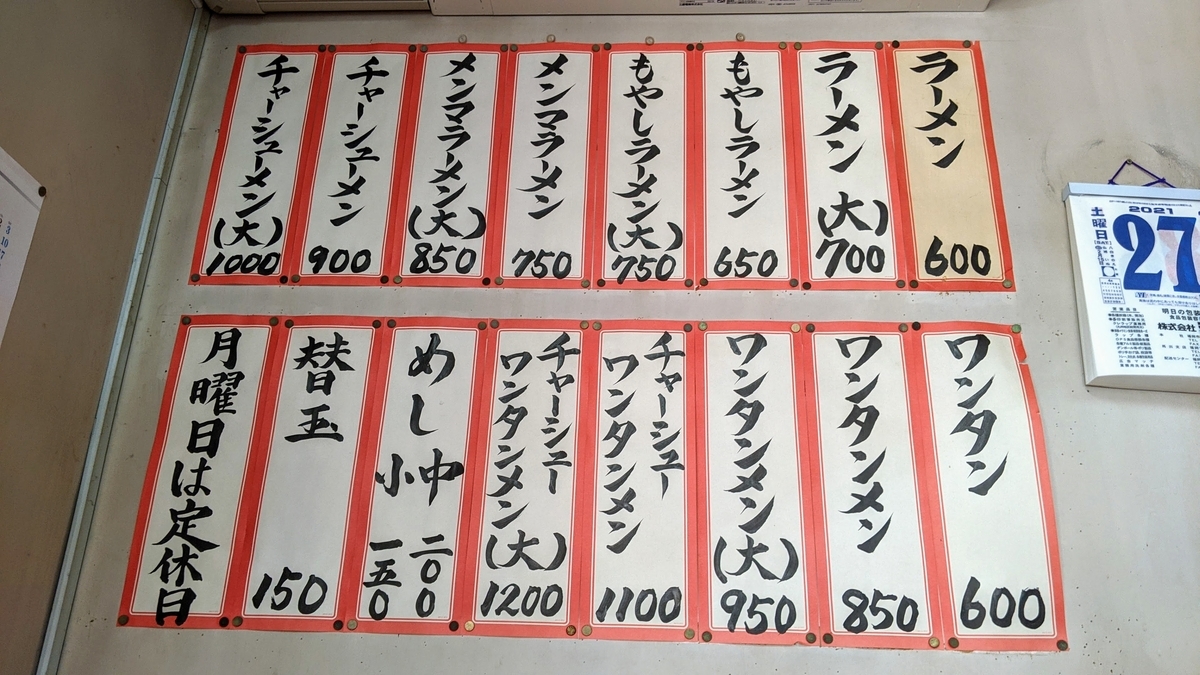 ラーメン 600
ラーメン (大) 700
もやしラーメン 650
もやしラーメン(大) 750
メンマラーメン 750
メンマラーメン(大) 850
チャーシューメン 900
チャーシューメン(大) 1000
ワンタン 600
ワンタンメン 850
ワンタンメン(大) 950
チャーシュー
ワンタンメン 1100
チャーシュー
ワンタンメン(大) 1200
めし 中 二〇〇
小 一五〇
替玉 150
月曜日は定休日
2021
土曜日
27
明日の包装
株式会社